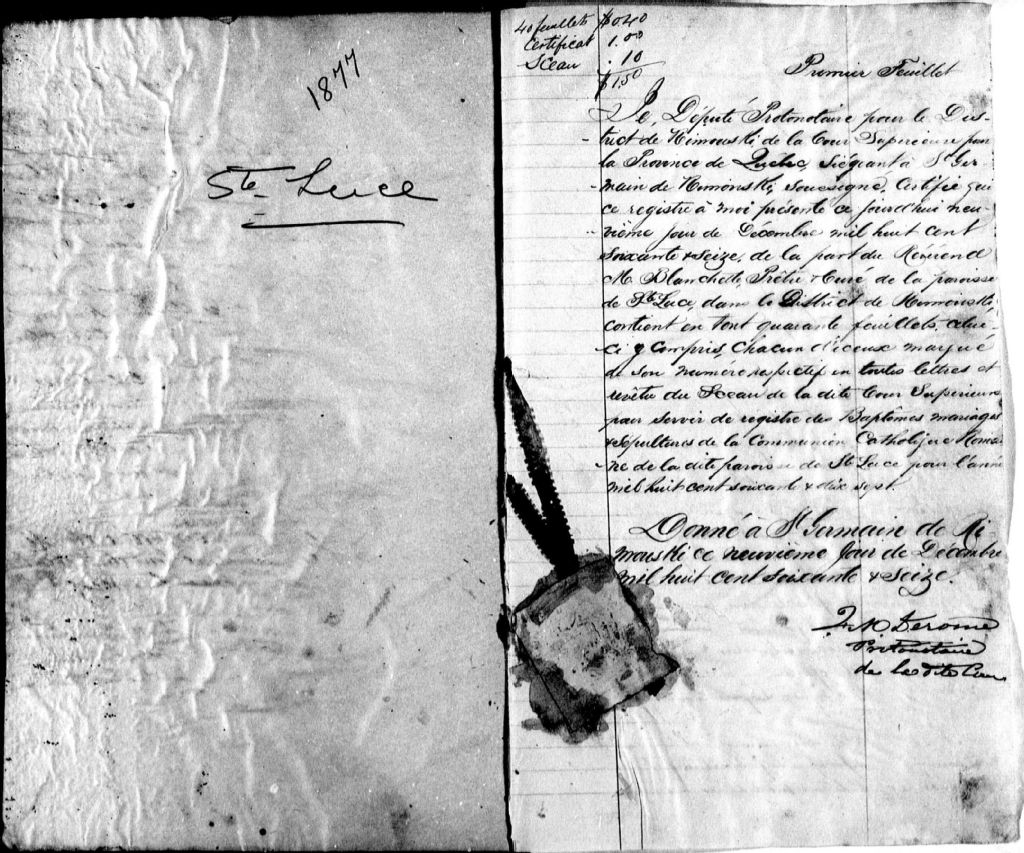 1877
Ste Luce
40 feuillets $0.40
Certificat 1.00
Sceau .10
$1.50
Premier Feuillet
Je, Député Protonotaire pour le Dis-
trict de Rimouski de la Cour Superieure pour
la Province de Quebec, siégeant à St Ger-
main de Rimouski, soussigné, Certifie que
ce registre à moi présenté ce jourd'hui neu-
vième jour de Decembre mil huit cent
soixante & seize, de la part du Révérend
M. Blanchette, Prêtre & Curé de la paroisse
de Ste Luce, dans le District de Rimouski,
contient en tout quarante feuillets, celui-
ci y compris, chacun d'iceux marqué
de son numéro respectif en toutes lettres et
revêtu du Sceau de la dite Cour Superieure
pour servir de registre des Baptêmes mariages
& Sépultures de la Communion Catholique Romai-
ne de la dite paroisse de Ste Luce pour l'année
mil huit cent soixante & dix sept.
Donné à St Germain de Ri-
mouski ce neuvième jour de Décembre
mil huit cent soixante & seize.
Derome
Protonotaire
de la dite Cour